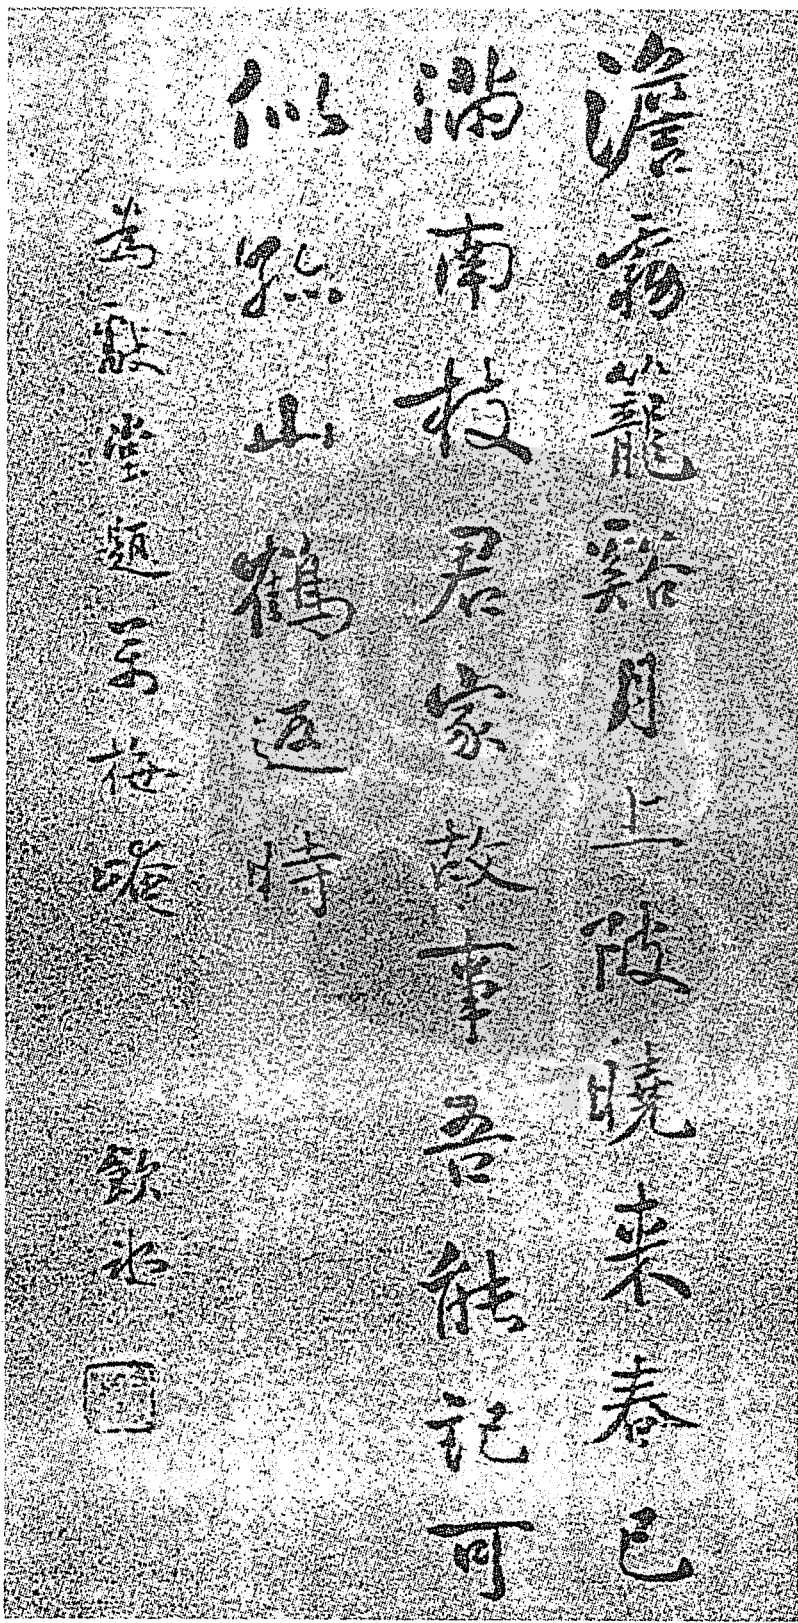 澹霧籠谿月上陂曉來春已
滿南枝君家故事吾能記可
似孤山鶴返時
為題万梅崦
飲冰